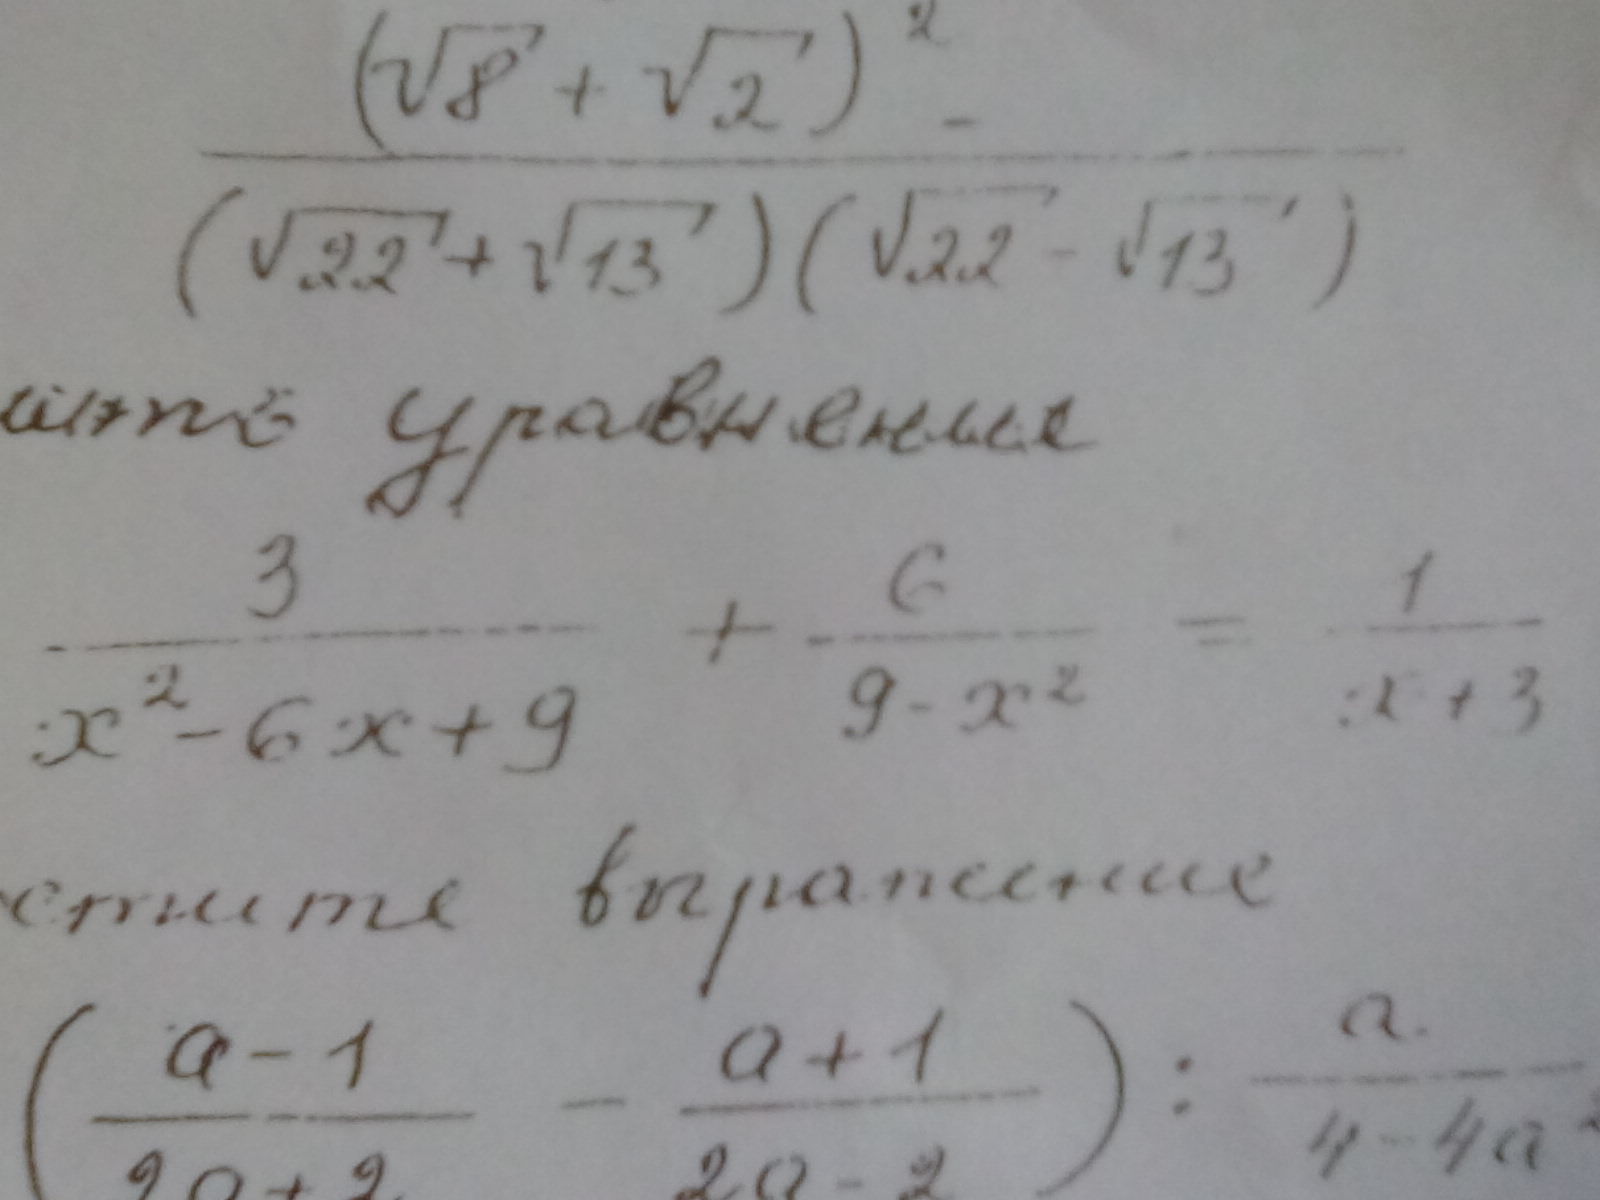 (√8 + √2)²
(√22 + √13)(√22 - √13)
ите уравнение
3/(x² - 6x + 9) + 6/(9 - x²) = 1/(x + 3)
стите выражение
((a - 1)/(2a + 2) - (a + 1)/(2a - 2)) : a/(4 - 4a²)